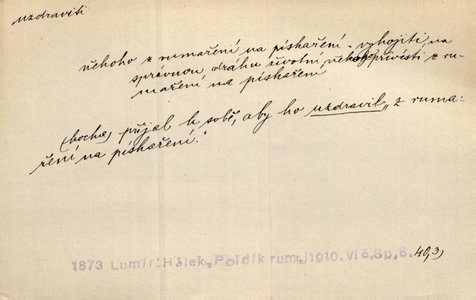 uzdraviti
někoho z rumaření na pískaření - vyhojiti, na
správnou dráhu životní někoho přivésti z ru-
maření na pískaření
(hocha) přijal k sobě, aby ho uzdravil „z ruma-
ření na pískaření."
1873 Lumír: Hálek, „Poldík rum.„ 1910. VI č. Sp. 8. 40,3)